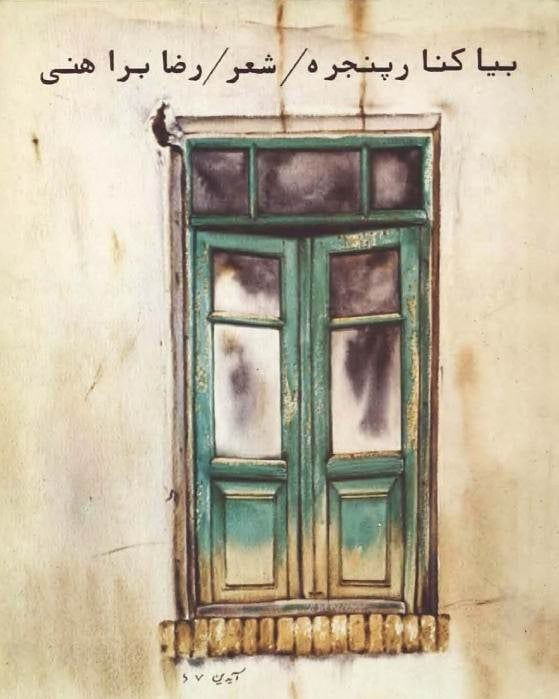 بیا کنار پنجره/ شعر/ رضا براهنی
آیدین ۶۷